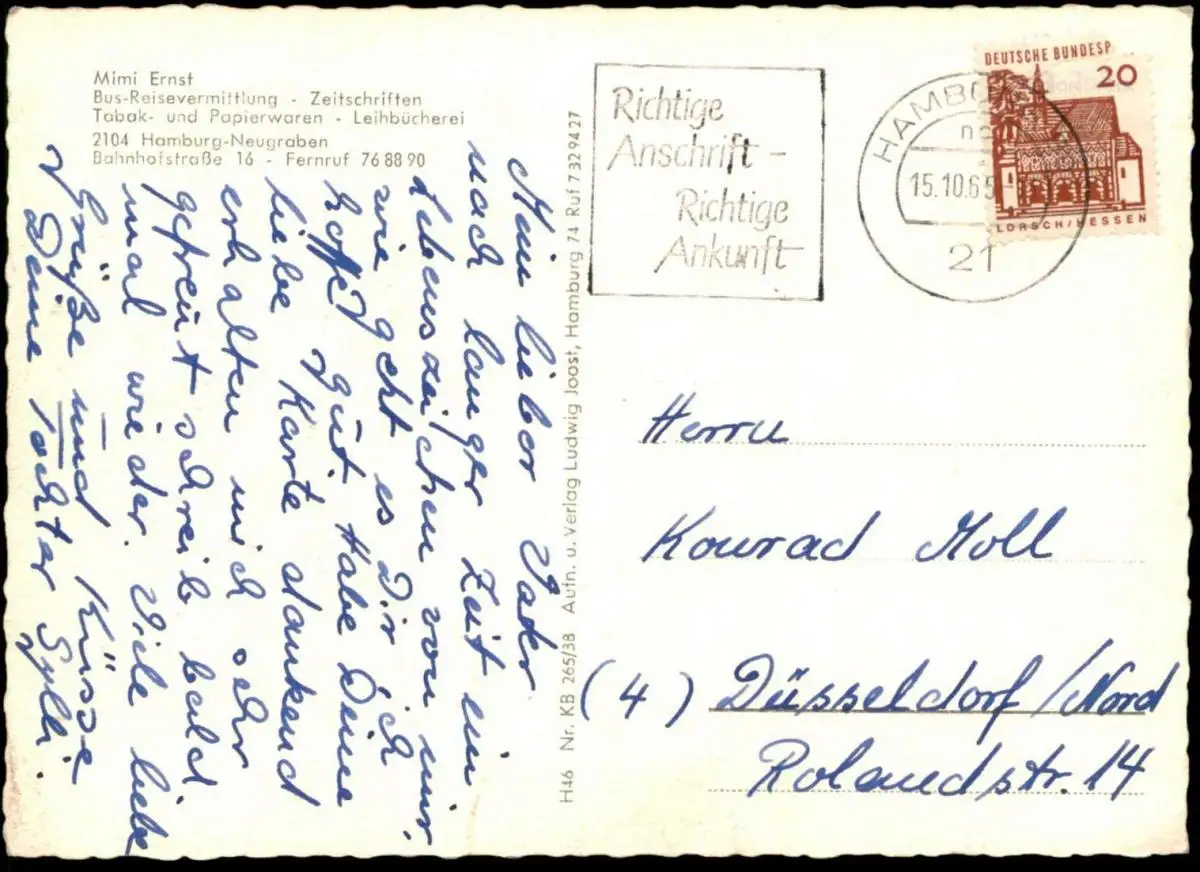 Mimi Ernst
Bus-Reisevermittlung - Zeitschriften
Tabak- und Papierwaren - Leihbücherei
2104 Hamburg-Neugraben
Bahnhofstraße 16 - Fernruf 76 88 90
Mein lieber Vader
nach langer Zeit ein
Lebenszeichen von mir.
wie geht es Dir ich
hoffe gut. Habe Deine
liebe Karte dankend
erhalten mich sehr
gefreut schreib bald
mal wieder. Viele liebe
Grüße und Küsse
Deine Tochter Sylli.
H46 Nr. KB 265/38 Aufn. u. Verlag Ludwig Joost, Hamburg 74 Ruf 7 32 94 27
Richtige
Anschrift -
Richtige
Ankunft
HAMBU
15.10.65
21
DEUTSCHE BUNDESP
20
LORSCH/HESSEN
Herrn
Konrad Moll
(4) Düsseldorf/Nord
Rolandstr. 14